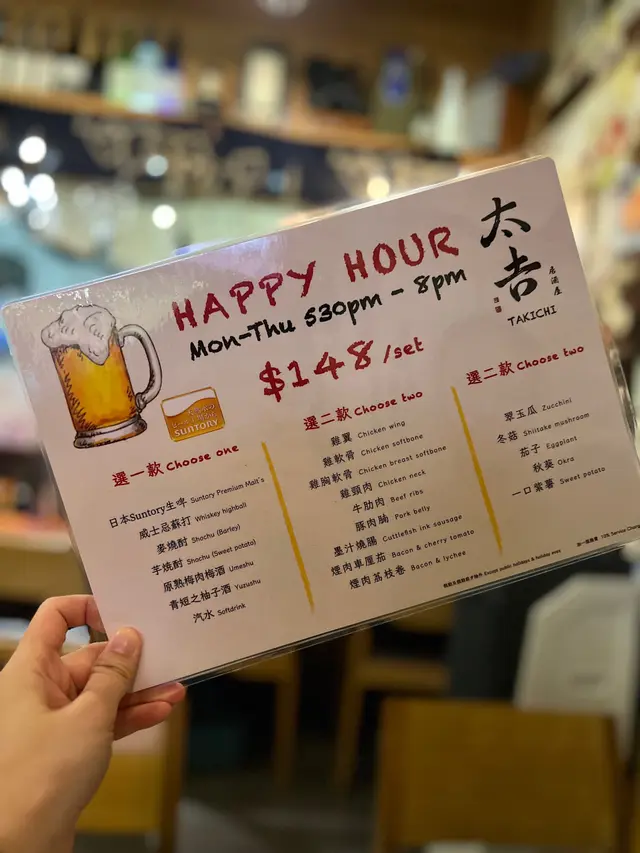 HAPPY HOUR
Mon-Thu 530pm - 8pm
$148/set
太吉
居酒屋
TAKICHI
SUNTORY
選一款 Choose one
日本Suntory生啤 Suntory Premium Malt's
威士忌蘇打 Whiskey highball
麥燒酎 Shochu (Barley)
芋燒酎 Shochu (Sweet potato)
原熟梅肉梅酒 Umeshu
青短之柚子酒 Yuzushu
汽水 Softdrink
選二款 Choose two
雞翼 Chicken wing
雞軟骨 Chicken softbone
雞胸軟骨 Chicken breast softbone
雞頸肉 Chicken neck
牛肋肉 Beef ribs
豚肉腩 Pork belly
墨汁燒腸 Cuttlefish ink sausage
煙肉車厘茄 Bacon & cherry tomato
煙肉荔枝卷 Bacon & lychee
選二款 Choose two
翠玉瓜 Zucchini
冬菇 Shiitake mushroom
茄子 Eggplant
秋葵 Okra
一口紫薯 Sweet potato
Except public holidays & holiday eves
加一服務費 10% Service Charge